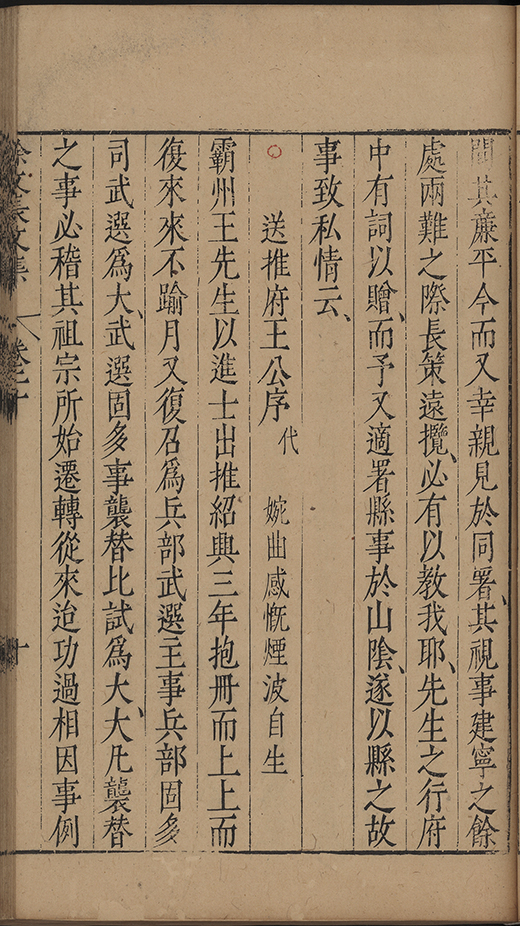 聞其廉平今而又幸親見於同署、其視事建寧之餘
處兩難之際長策遠攬、必有以教我耶、先生之行府
中有詞以贈、而予又適署縣事於山陰、遂以縣之故
事致私情云、
○ 送推府王公序 代 婉曲感慨煙波自生
霸州王先生以進士出推紹興三年抱冊而上上而
復來來不踰月又復召為兵部武選主事兵部固多
司武選為大、武選固多事襲替比試為大、大凡襲替
之事必稽其祖宗所始遷轉從來迨功過相因事例
徐文長文集 卷二十 十